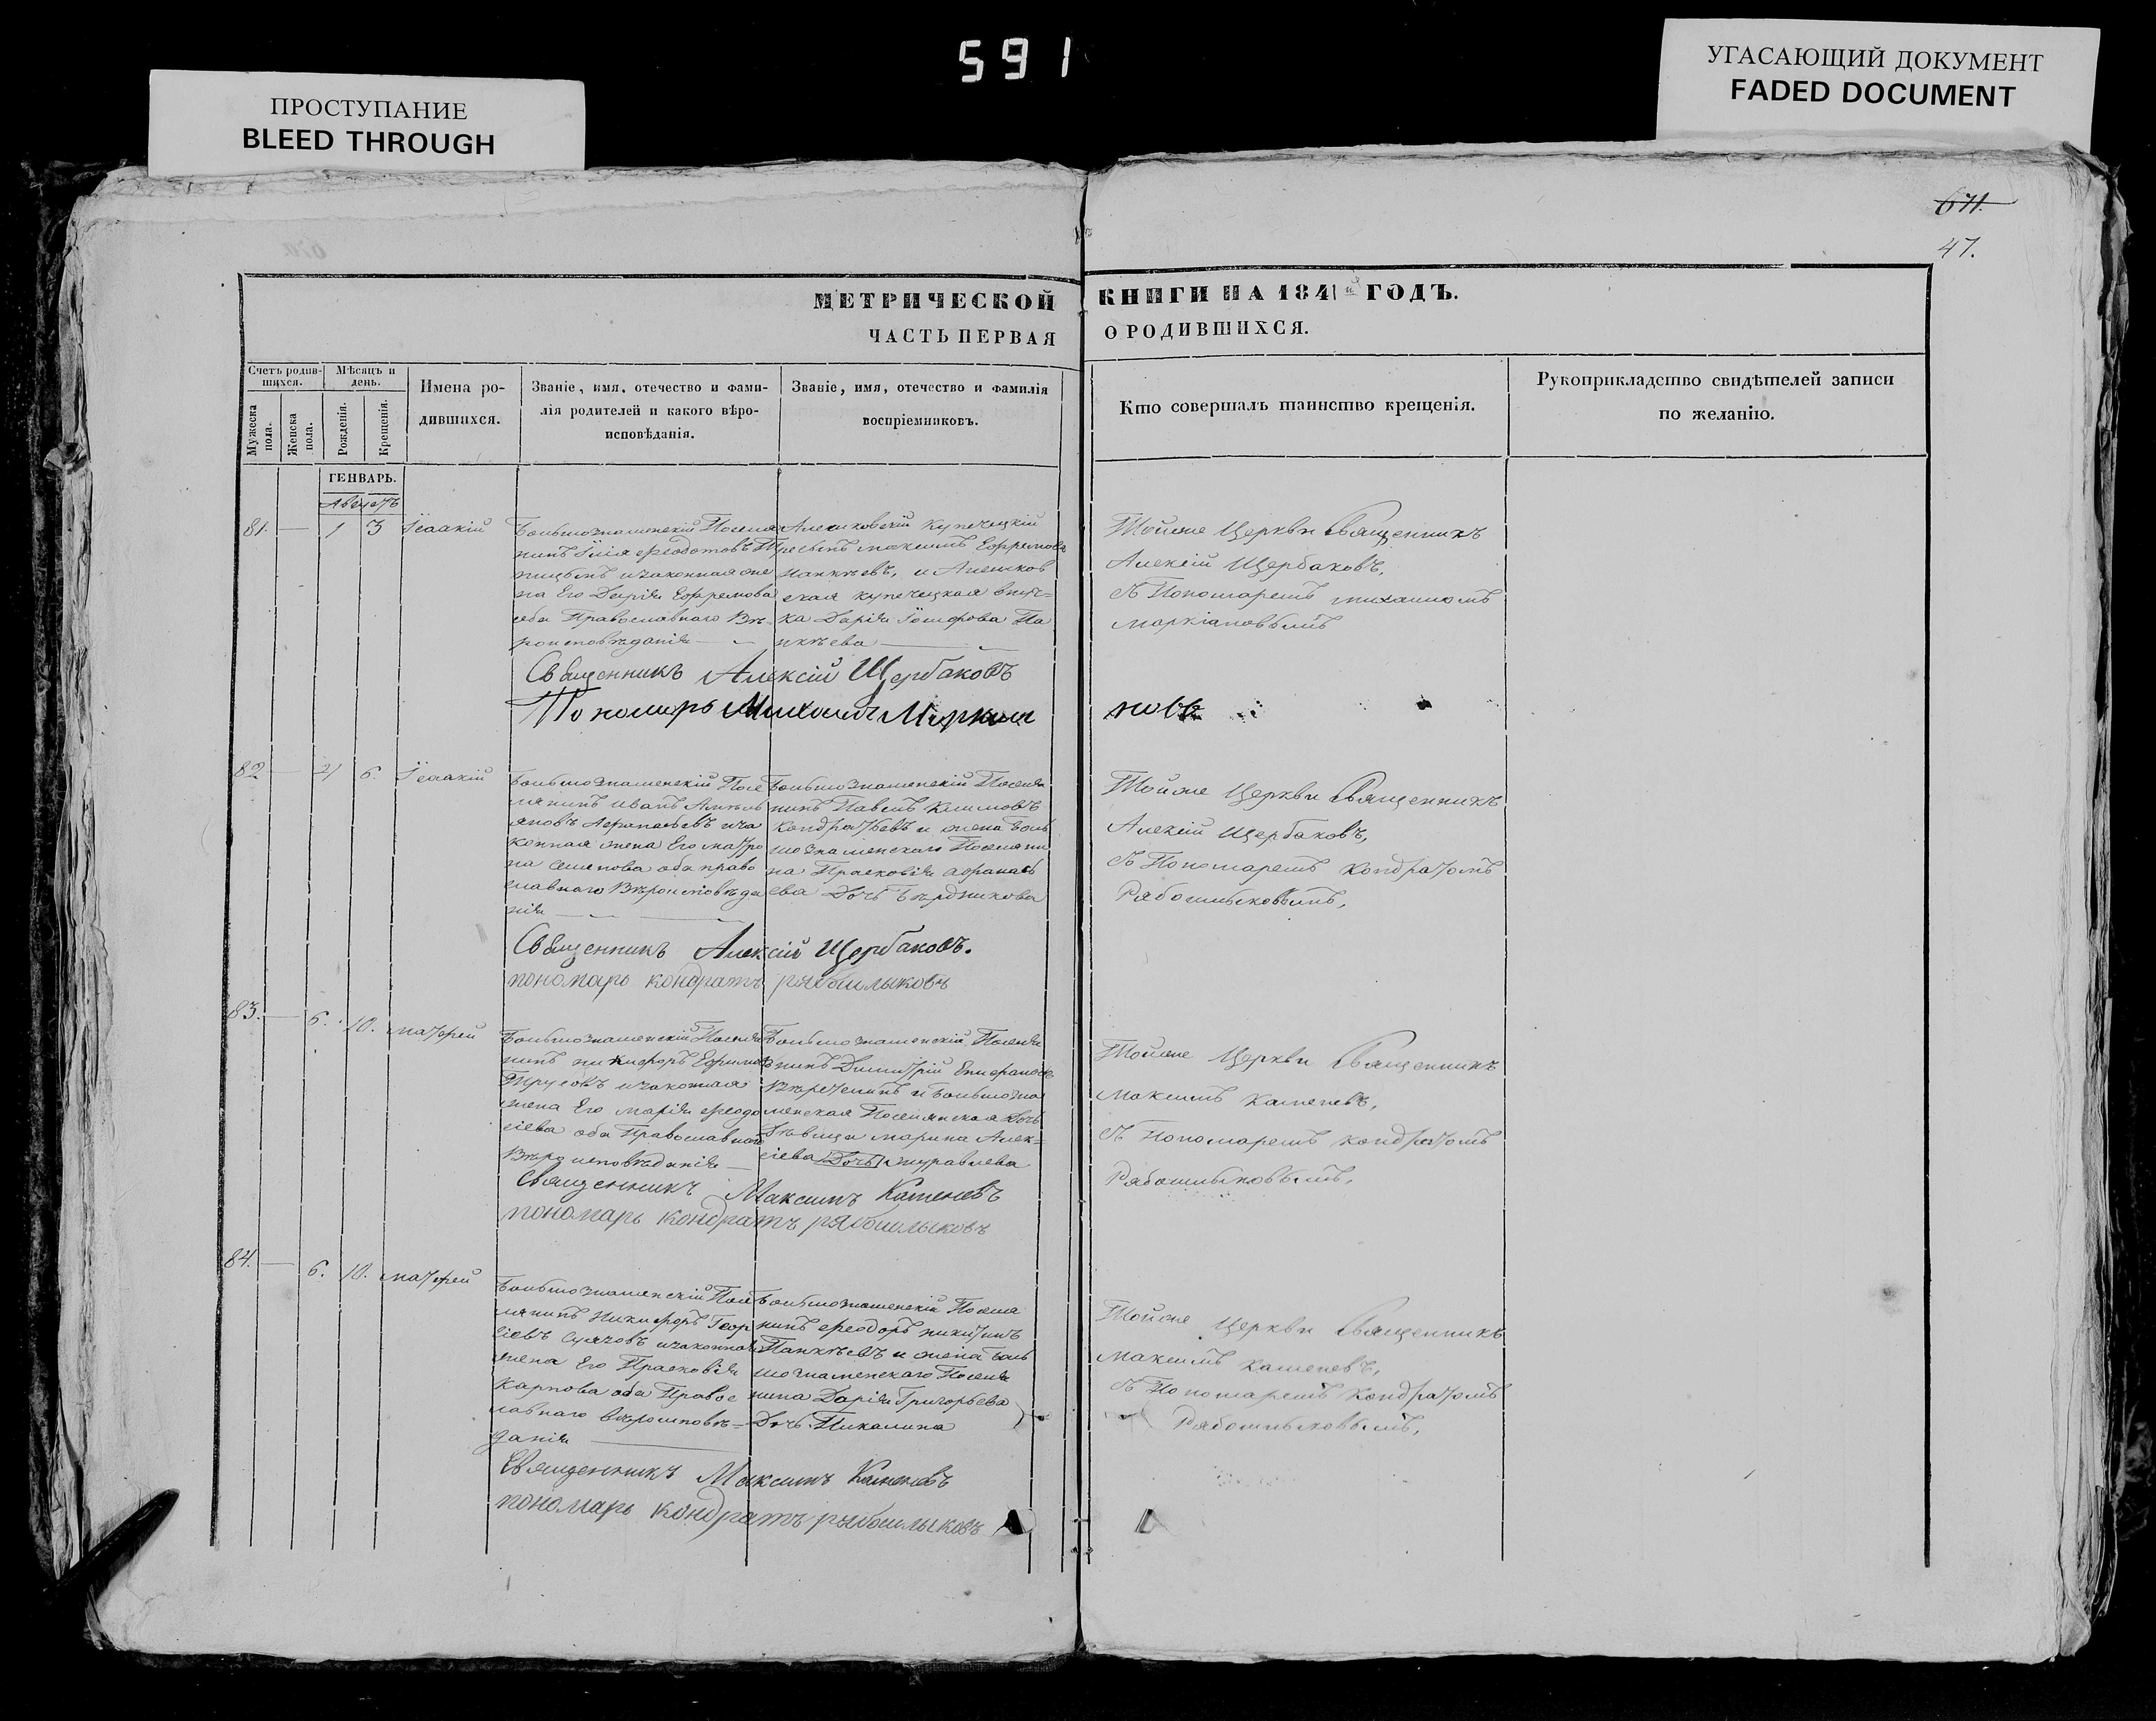 591
ПРОСТУПАНИЕ
BLEED THROUGH
УГАСАЮЩИЙ ДОКУМЕНТ
FADED DOCUMENT
671.
47.
МЕТРИЧЕСКОЙ КНИГИ НА 1841й ГОДЪ.
ЧАСТЬ ПЕРВАЯ О РОДИВШИХСЯ.
Счетъ родив-
шихся.
Мужеска пола.
Женска пола.
Мѣсяцъ и
день.
Рожденія.
Крещенія.
Имена ро-
дившихся.
Званіе, имя, отечество и фами-
лія родителей и какого вѣро-
исповѣданія.
Званіе, имя, отечество и фамилія
воспріемниковъ.
Кто совершалъ таинство крещенія.
Рукоприкладство свидѣтелей записи
по желанію.
ГЕНВАРЬ.
Августъ
81. — 1 3 Ісаакій
Большознаменскій Поселя
нинъ Ілія Феодотовъ
и законная же
на Его Дарія Ефремова
оба Православнаго Вѣ-
роисповѣданія
Алешковскій Купеческій
Максимъ Ефремовъ
Панкѣевъ, и Алешков
ская купеческая внуч-
ка Дарія Іосифова Па
нкѣева
Тойже Церкви Священникъ
Алексій Щербаковъ,
съ Пономаремъ Михаиломъ
Маркіановымъ
Священникъ Алексій Щербаковъ
Пономарь Михаилъ Маркіа новъ
82 — 4 6. Ісаакій
Большознаменскій Посе
лянинъ Иванъ
Афанасьевъ и за
конная жена Его Матро
на Семенова оба право
славнаго Вѣроисповѣда
нія
Большознаменскій Поселя
нинъ Павелъ Климовъ
Кондратьевъ и жена Боль
шознаменскаго Поселяни
на Прасковія Афанась
ева Дочь Бердникова
Тойже Церкви Священникъ
Алексій Щербаковъ,
съ Пономаремъ Кондратомъ
Рябошлыковымъ,
Священникъ Алексій Щербаковъ.
пономарь кондратъ рябошлыковъ
83. — 6. 10. Матфей
Большознаменскій Поселя
нинъ Никифоръ Ефимовъ
Трусовъ и законная
жена Его Марія Феодо
сіева оба Православнаго
Вѣроисповѣданія
Большознаменскій Поселя
нинъ Димитрій
и Большозна
менская Поселянская Дочь
Дѣвица Марина Алек-
сіева Дочь Журавлева
Тойже Церкви Священникъ
Максимъ Каменевъ,
съ Пономаремъ Кондратомъ
Рябошлыковымъ,
Священникъ Максимъ Каменевъ
пономарь кондратъ рябошлыковъ
84. — 6. 10. Матфей
Большознаменскій Посе
лянинъ Никифоръ Геор
гіевъ и законная
жена Его Прасковія
Карпова оба Правос
лавнаго вѣроисповѣ-
данія
Большознаменскій Поселя
нинъ Феодоръ Никитинъ
Панкѣевъ и жена Боль
шознаменскаго Поселя
нина Дарія Григорьева
Дочь Пикалина
Тойже Церкви Священникъ
Максимъ Каменевъ,
съ Пономаремъ Кондратомъ
Рябошлыковымъ,
Священникъ Максимъ Каменевъ
пономарь кондратъ рябошлыковъ